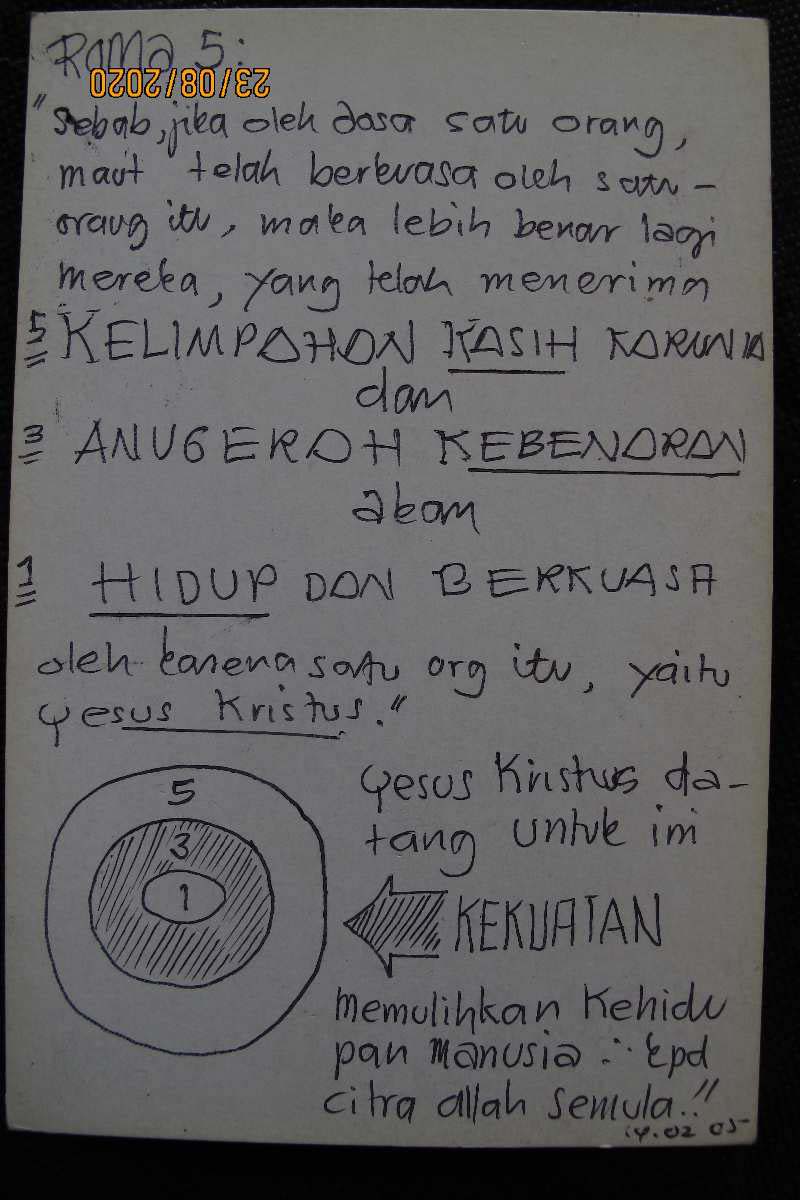 Roma 5:
23/08/2020
"Sebab, jika oleh dosa satu orang,
maut telah berkuasa oleh satu-
orang itu, maka lebih benar lagi
mereka, yang telah menerima
5 KELIMPAHAN KASIH KARUNIA
dan
3 ANUGERAH KEBENARAN
akan
1 HIDUP DAN BERKUASA
oleh karena satu org itu, yaitu
Yesus Kristus."
5
3
1
Yesus Kristus da-
tang untuk ini
KEKUATAN
memulihkan Kehidu
pan manusia ∴ kpd
citra allah semula.!!
14.02 05